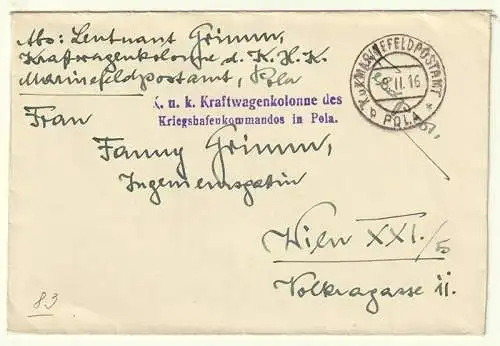 Abs: Leutnant Grimm,
Kraftwagenkolonne d. K. H. K.
Marinefeldpostamt, Pola
K.u.K. MARINEFELDPOSTAMT
8 II. 16
b POLA *
K. u. k. Kraftwagenkolonne des
Kriegshafenkommandos in Pola.
Frau
Fanny Grimm,
Ingenieursgattin
Wien XXI./5
Volkragasse 11.
83